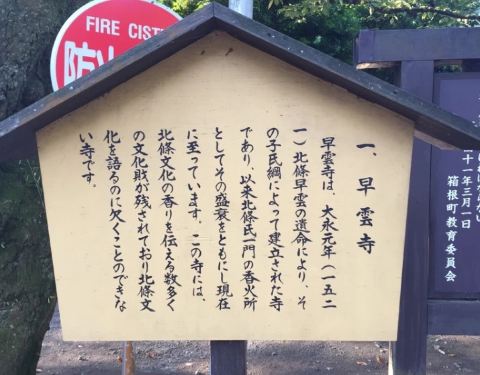 FIRE CISTE
防火
一、早雲寺
早雲寺は、大永元年（一五二
一）北條早雲の遺命により、そ
の子氏綱によって建立された寺
であり、以来北條氏一門の香火所
としてその盛衰をともにし現在
に至っています。この寺には、
北條文化の香りを伝える数多く
の文化財が残されており北條文
化を語るのに欠くことのできな
い寺です。
十一年三月一日
箱根町教育委員会